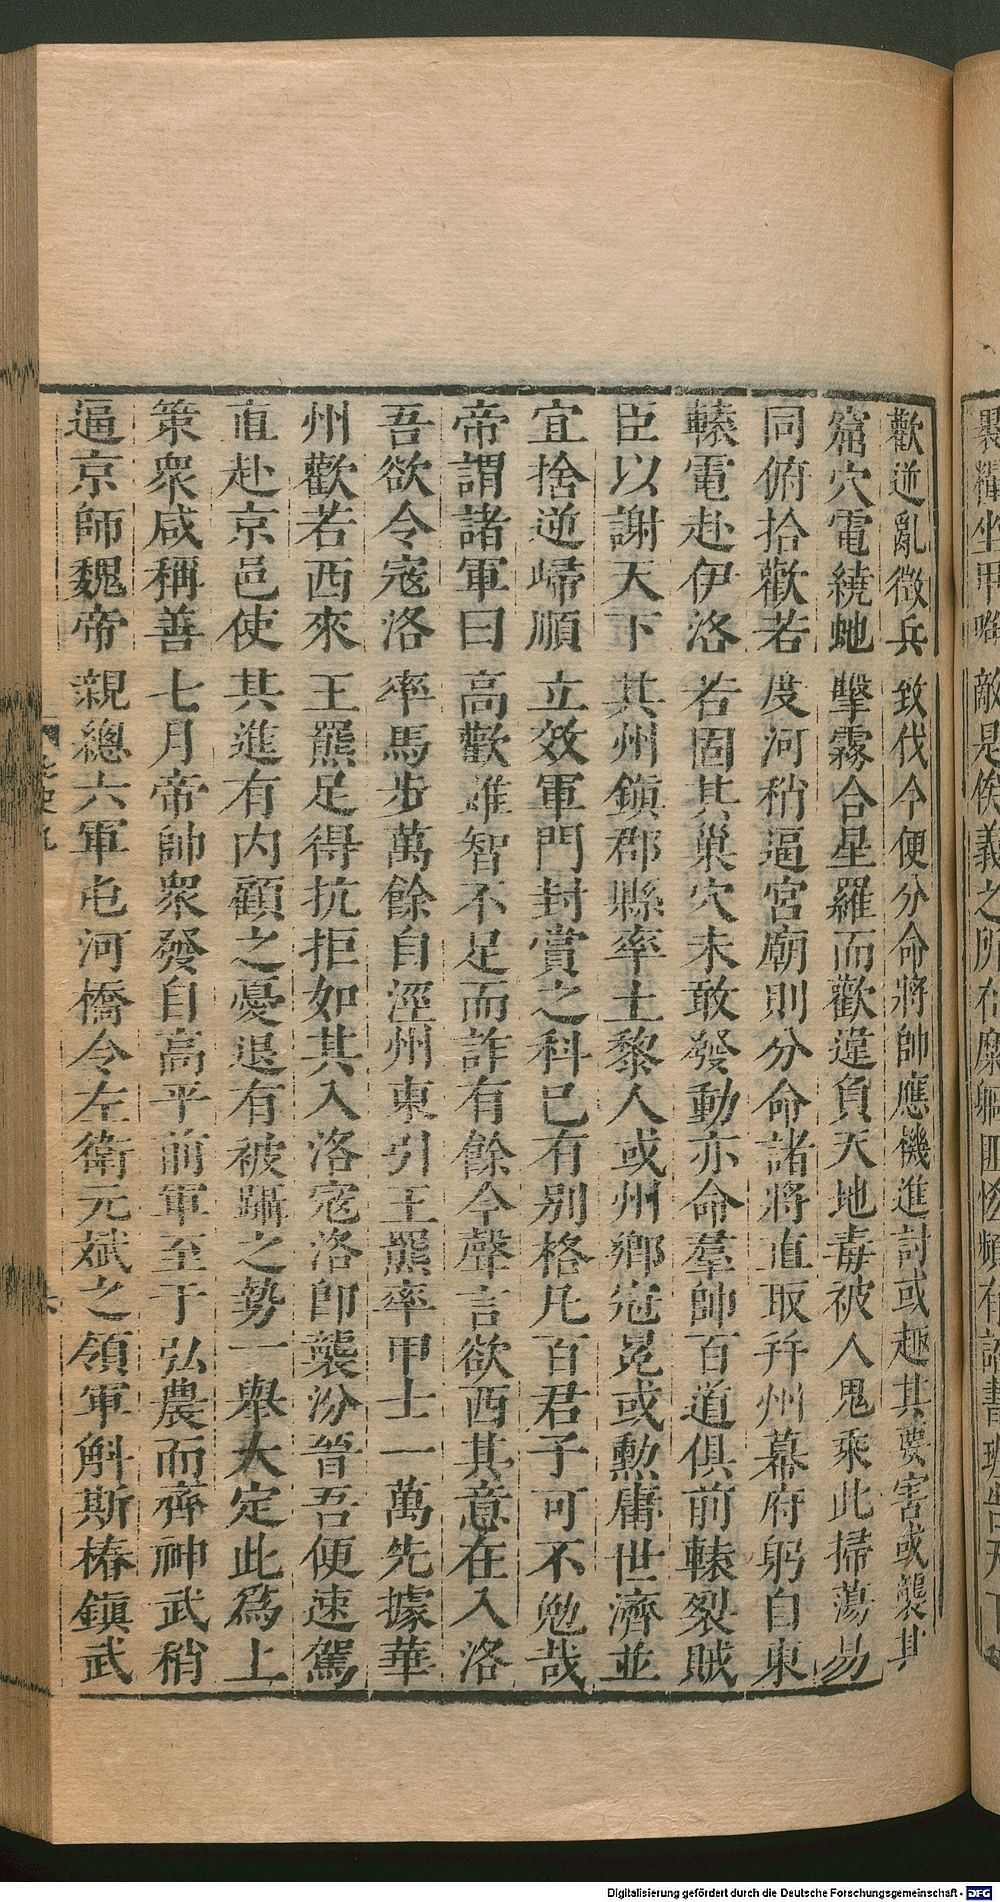 歡逆亂徵兵致伐今便分命將帥應機進討或趣其要害或襲其
窟穴電繞虵擊霧合星羅而歡違負天地毒被人鬼乘此掃蕩易
同俯拾歡若度河稍逼宮廟則分命諸將直取并州幕府躬自東
轅電赴伊洛若固其巢穴未敢發動亦命羣帥百道俱前轅裂賊
臣以謝天下其州鎭郡縣率土黎人或州鄉冠冕或勳庸世濟並
宜捨逆歸順立效軍門封賞之科已有別格凡百君子可不勉哉
帝謂諸軍曰高歡雖智不足而詐有餘今聲言欲西其意在入洛
吾欲令寇洛率馬步萬餘自涇州東引王羆率甲士一萬先據華
州歡若西來王羆足得抗拒如其入洛寇洛卽襲汾晉吾便速駕
直赴京邑使其進有内顧之憂退有被躡之勢一舉大定此爲上
策衆咸稱善七月帝帥衆發自高平前軍至于弘農而齊神武稍
逼京師魏帝親總六軍屯河橋令左衛元斌之領軍斛斯椿鎭武
Digitalisierung gefördert durch die Deutsche Forschungsgemeinschaft - DFG